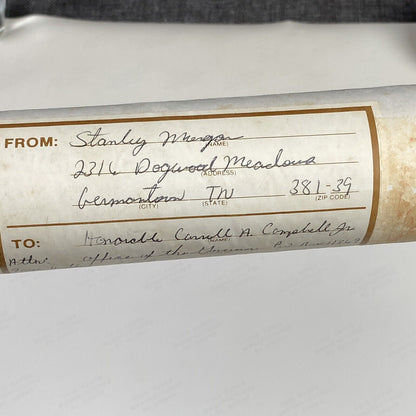 FROM: Stanley Morgan
(NAME)
2316 Dogwood Meadows
(ADDRESS)
Germantown TN 381-39
(CITY) (STATE) (ZIP CODE)
TO: Honorable Carroll A. Campbell Jr
(NAME)
Attn: Office of the Governor P.O. Box